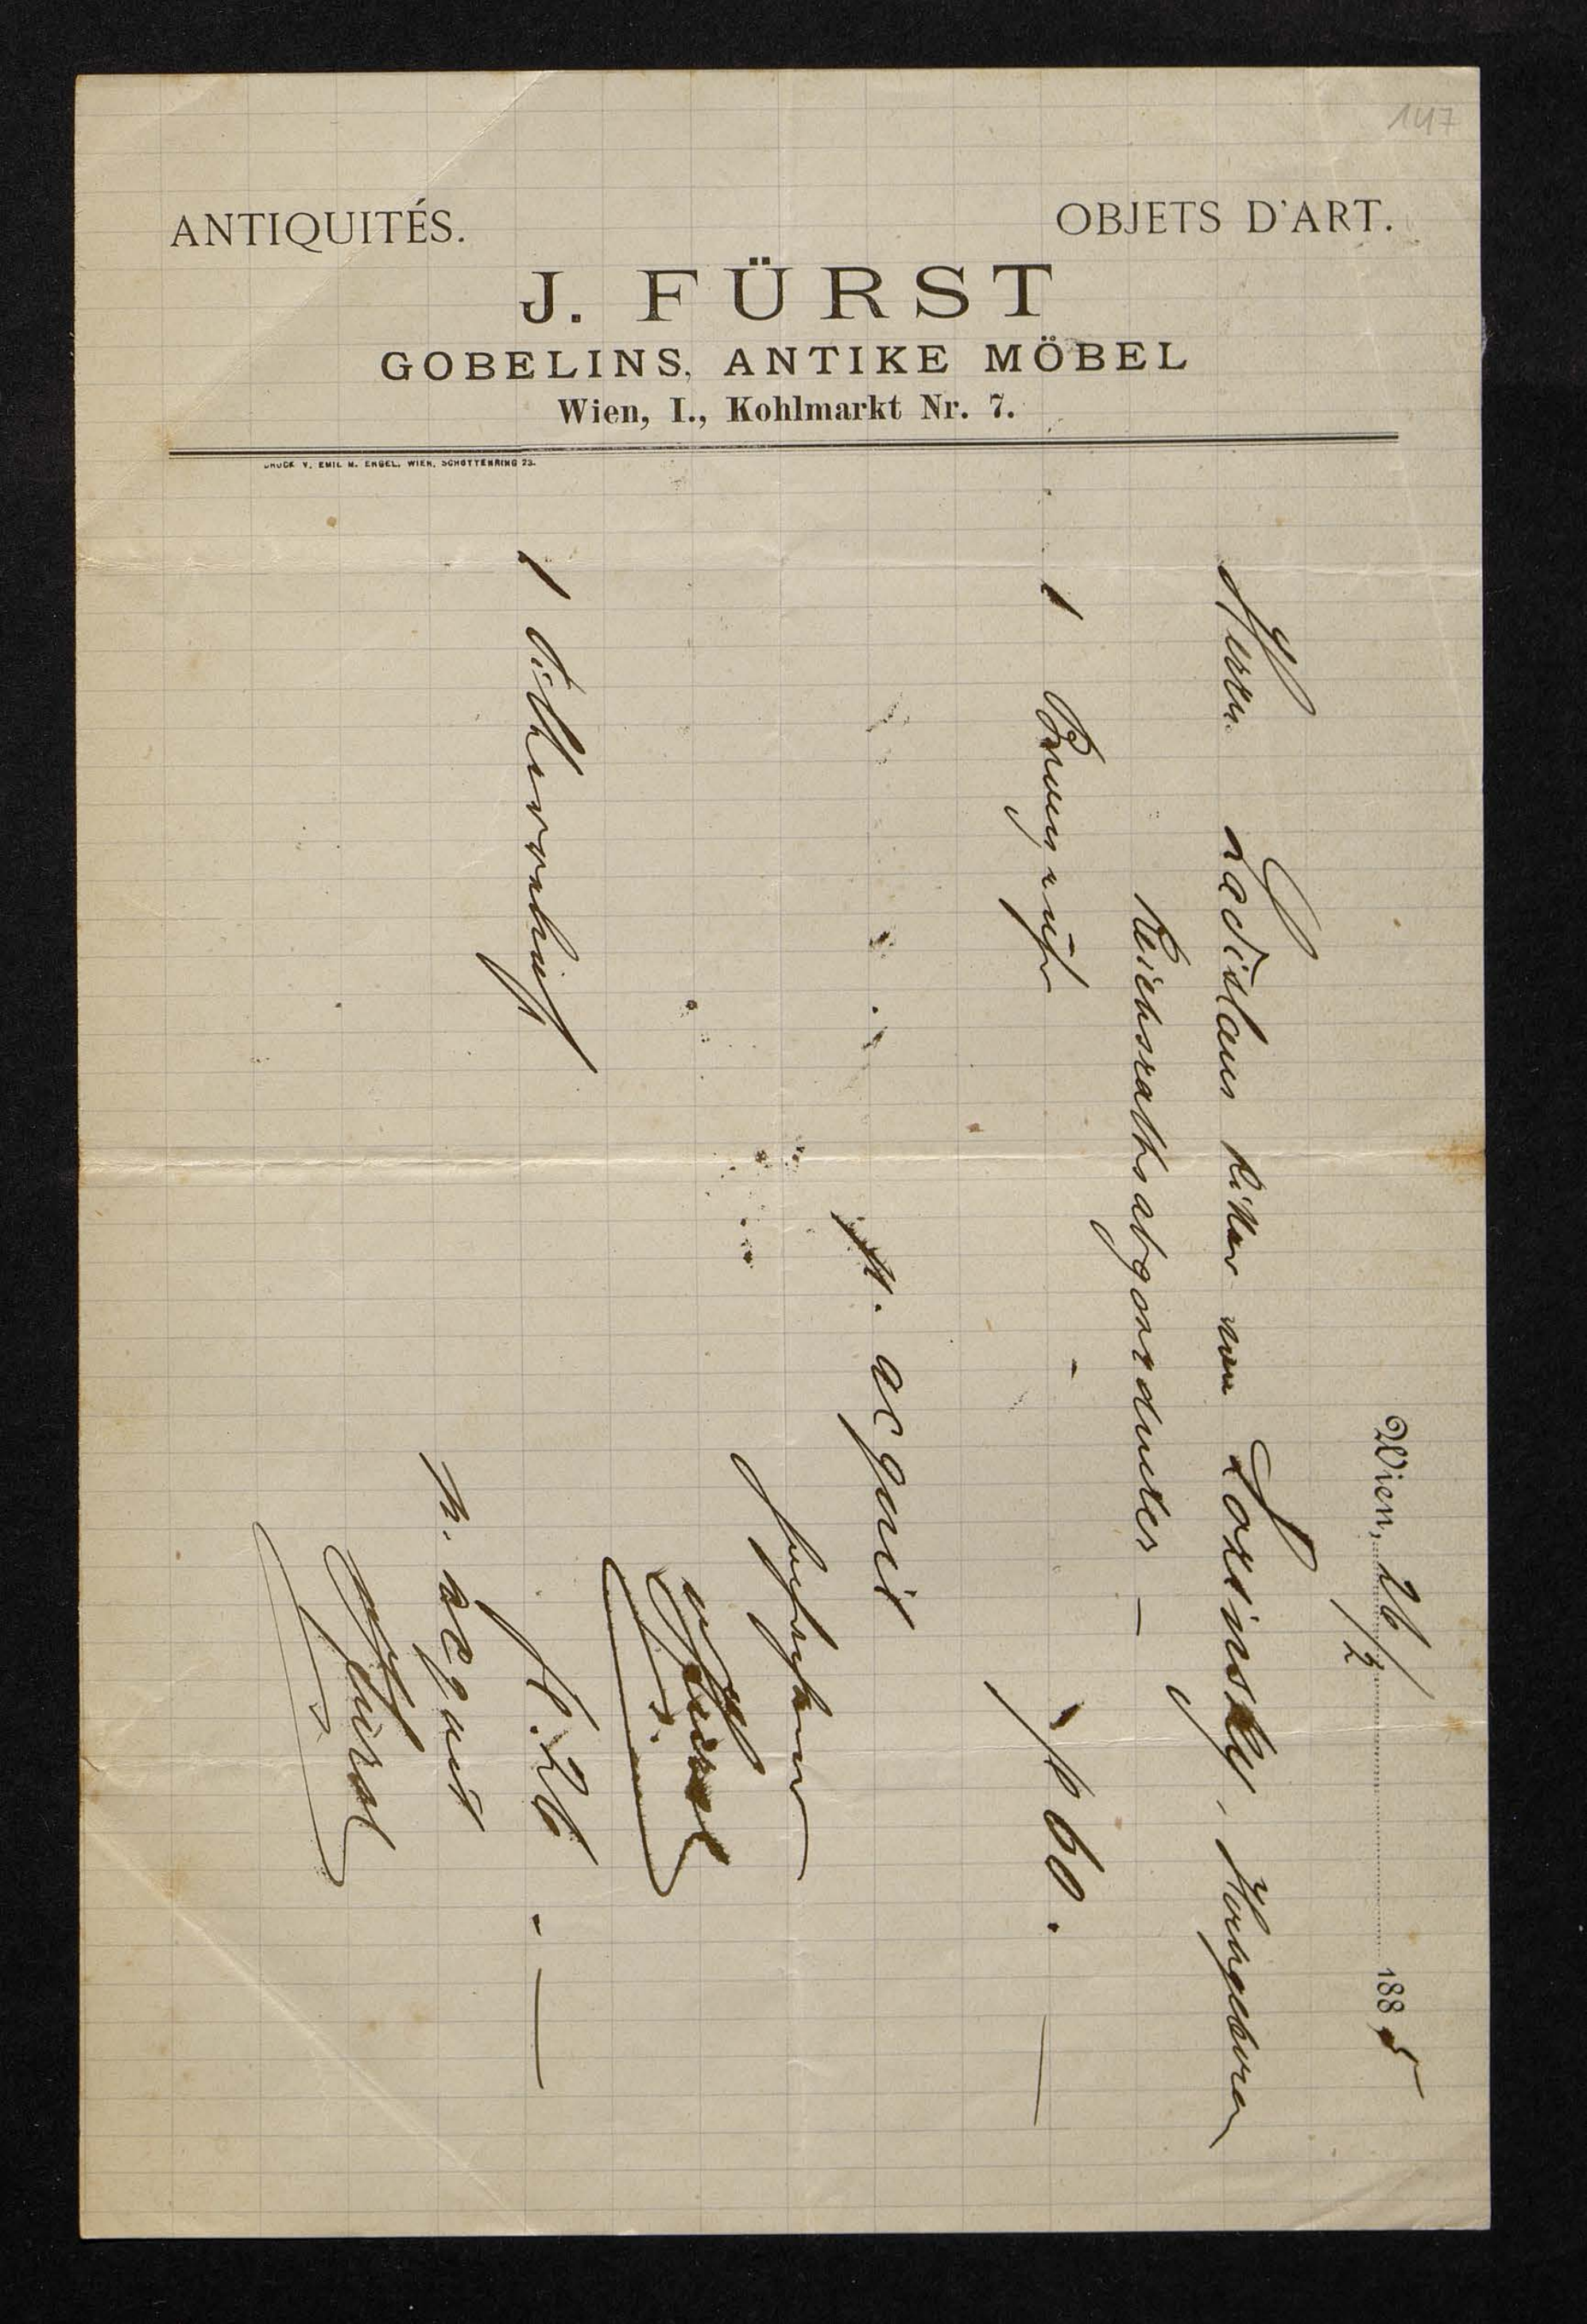 147
ANTIQUITÉS. OBJETS D'ART.
J. FÜRST
GOBELINS, ANTIKE MÖBEL
Wien, I., Kohlmarkt Nr. 7.
DRUCK V. EMIL M. ENGEL, WIEN, SCHOTTENRING 23.
Wien, 26/2 1885
Herrn Ladislaus Ritter von Lozinsky, Hochgeboren
Reichsrathsabgeordneter —
1 Bronzeuhr fl 60. —
p. acquit
JFürst
1 fl. 26. —
p. acquit
JFürst